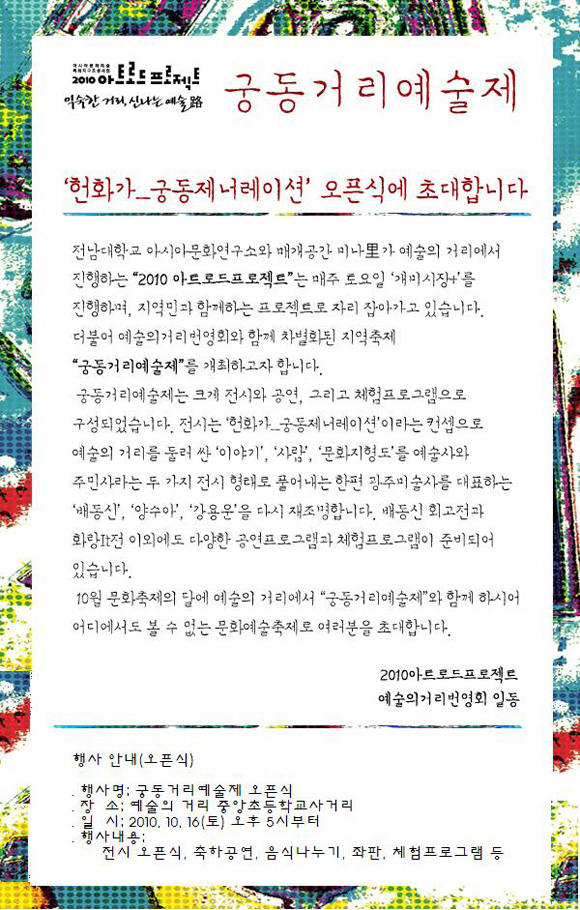 아시아문화예술
특화지구조성사업
2010 아트로드 프로젝트
익숙한 거리, 신나는 예술路
궁동거리예술제
‘헌화가_궁동제너레이션’ 오픈식에 초대합니다
전남대학교 아시아문화연구소와 매개공간 미나里가 예술의 거리에서
진행하는 “2010 아트로드프로젝트”는 매주 토요일 ‘개미시장+’를
진행하며, 지역민과 함께하는 프로젝트로 자리 잡아가고 있습니다.
더불어 예술의거리번영회와 함께 차별화된 지역축제
“궁동거리예술제”를 개최하고자 합니다.
궁동거리예술제는 크게 전시와 공연, 그리고 체험프로그램으로
구성되었습니다. 전시는 ‘헌화가_궁동제너레이션’이라는 컨셉으로
예술의 거리를 둘러 싼 ‘이야기’, ‘사람’, ‘문화지형도’를 예술사와
주민사라는 두 가지 전시 형태로 풀어내는 한편 광주미술사를 대표하는
‘배동신’, ‘양수아’, ‘강용운’을 다시 재조명합니다. 배동신 회고전과
화랑It전 이외에도 다양한 공연프로그램과 체험프로그램이 준비되어
있습니다.
10월 문화축제의 달에 예술의 거리에서 “궁동거리예술제”와 함께 하시어
어디에서도 볼 수 없는 문화예술축제로 여러분을 초대합니다.
2010아트로드프로젝트
예술의거리번영회 일동
행사 안내(오픈식)
. 행사명; 궁동거리예술제 오픈식
. 장 소; 예술의 거리 중앙초등학교사거리
. 일 시; 2010. 10. 16(토) 오후 5시부터
. 행사내용;
전시 오픈식, 축하공연, 음식나누기, 좌판, 체험프로그램 등